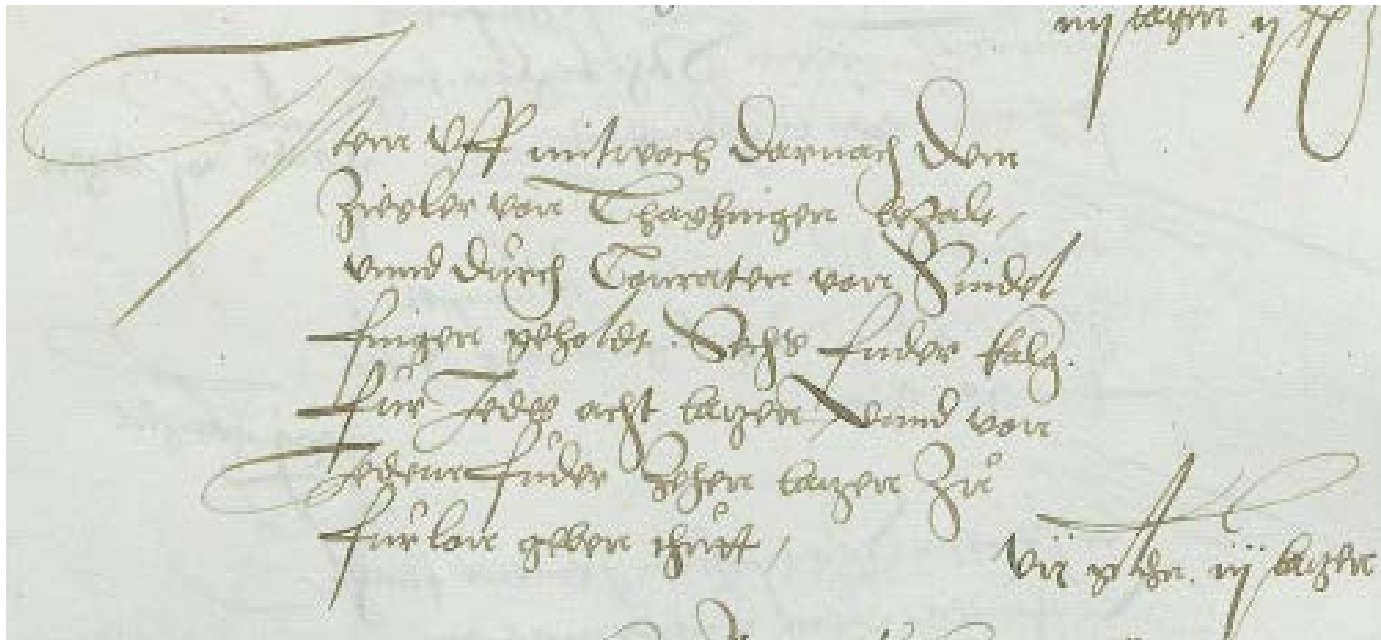 iiij batzen ij
Item Uff mitwoch darnach dem
Ziegler von Thayhingen bezalt /
vnnd durch Conraten von Sindel
fingen geholdt. Sechs fuder kalg.
für Jedes acht batzen / vnnd von
Jedem fuder Zehen batzen Zu
fürlon geben thutt /
vij iij batzen